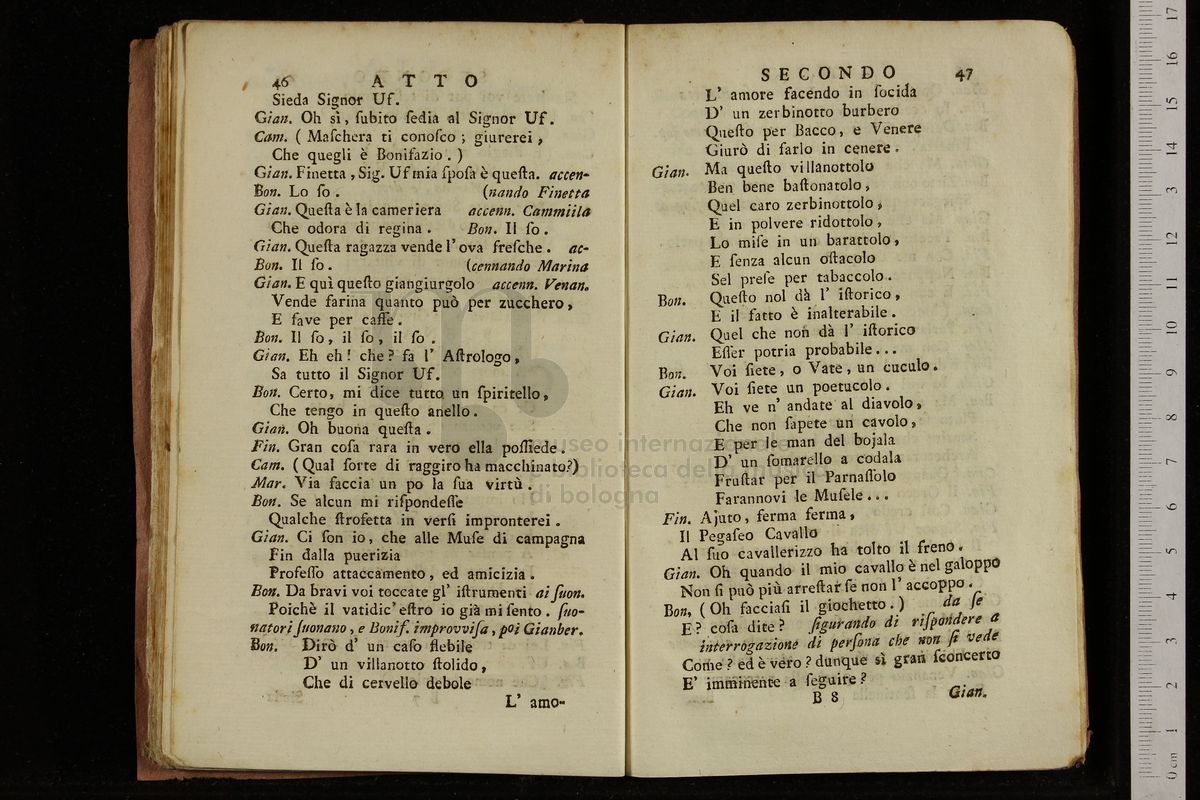 46 ATTO
Sieda Signor Uf.
Gian. Oh sì, ſubito ſedia al Signor Uf.
Cam. ( Maſchera ti conoſco ; giurerei ,
Che quegli è Bonifazio . )
Gian. Finetta , Sig. Uf mia ſpoſa è queſta. accen-
Bon. Lo ſo . (nando Finetta
Gian. Queſta è la cameriera accenn. Cammilla
Che odora di regina . Bon. Il ſo .
Gian. Queſta ragazza vende l' ova freſche . ac-
Bon. Il ſo . (cennando Marina
Gian. E quì queſto giangiurgolo accenn. Venan.
Vende farina quanto può per zucchero ,
E fave per caffè .
Bon. Il ſo , il ſo , il ſo .
Gian. Eh eh ! che ? fa l' Aſtrologo ,
Sa tutto il Signor Uf.
Bon. Certo, mi dice tutto un ſpiritello ,
Che tengo in queſto anello .
Gian. Oh buona queſta .
Fin. Gran coſa rara in vero ella poſſiede .
Cam. ( Qual ſorte di raggiro ha macchinato?)
Mar. Via faccia un po la ſua virtù .
Bon. Se alcun mi riſpondeſſe
Qualche ſtrofetta in verſi impronterei .
Gian. Ci ſon io , che alle Muſe di campagna
Fin dalla puerizia
Profeſſo attaccamento , ed amicizia .
Bon. Da bravi voi toccate gl' iſtrumenti ai ſuon.
Poichè il vatidic' eſtro io già mi ſento . ſuo-
natori ſuonano , e Bonif. improvviſa , poi Gianber.
Bon. Dirò d' un caſo flebile
D' un villanotto ſtolido ,
Che di cervello debole
L' amo-
SECONDO 47
L' amore facendo in ſocida
D' un zerbinotto burbero
Queſto per Bacco, e Venere
Giurò di farlo in cenere .
Gian. Ma queſto villanottolo
Ben bene baſtonatolo ,
Quel caro zerbinottolo ,
E in polvere ridottolo ,
Lo miſe in un barattolo ,
E ſenza alcun oſtacolo
Sel preſe per tabaccolo .
Bon. Queſto nol dà l' iſtorico ,
E il fatto è inalterabile .
Gian. Quel che non dà l' iſtorico
Eſſer potria probabile . . .
Bon. Voi ſiete , o Vate , un cuculo .
Gian. Voi ſiete un poetucolo .
Eh ve n' andate al diavolo ,
Che non ſapete un cavolo ,
E per le man del bojala
D' un ſomarello a codala
Fruſtar per il Parnaſſolo
Farannovi le Muſele . . .
Fin. Ajuto , ferma ferma ,
Il Pegaſeo Cavallo
Al ſuo cavallerizzo ha tolto il freno .
Gian. Oh quando il mio cavallo è nel galoppo
Non ſi può più arreſtar ſe non l' accoppo .
Bon, ( Oh facciaſi il giochetto . ) da ſe
E ? coſa dite ? figurando di riſpondere a
interrogazione di perſona che non ſi vede
Come ? ed è vero ? dunque sì gran ſconcerto
E' imminente a ſeguire ?
B 8
Gian.
museo internazionale
e biblioteca della musica
di bologna